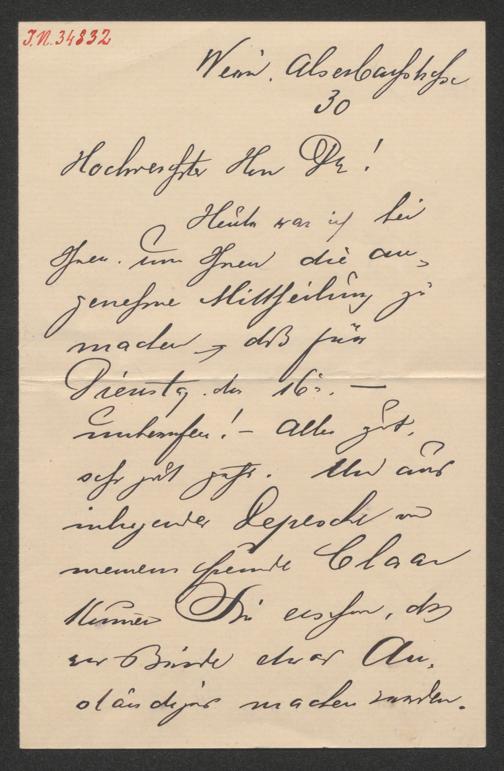 J.N. 34832
Wien. Alserbachstraße
30
Hochverehrter Herr Dr!
Heute war ich bei
Ihnen. um Ihnen die an-
genehme Mittheilung zu
machen, daß für
Dienstag den 16. —
unberufen! — Alles gut,
sehr gut geht. Und aus
inliegender Depesche von
meinem Freunde Claar
können Sie ersehen, daß
wir Beide etwas An-
ständiges machen werden.